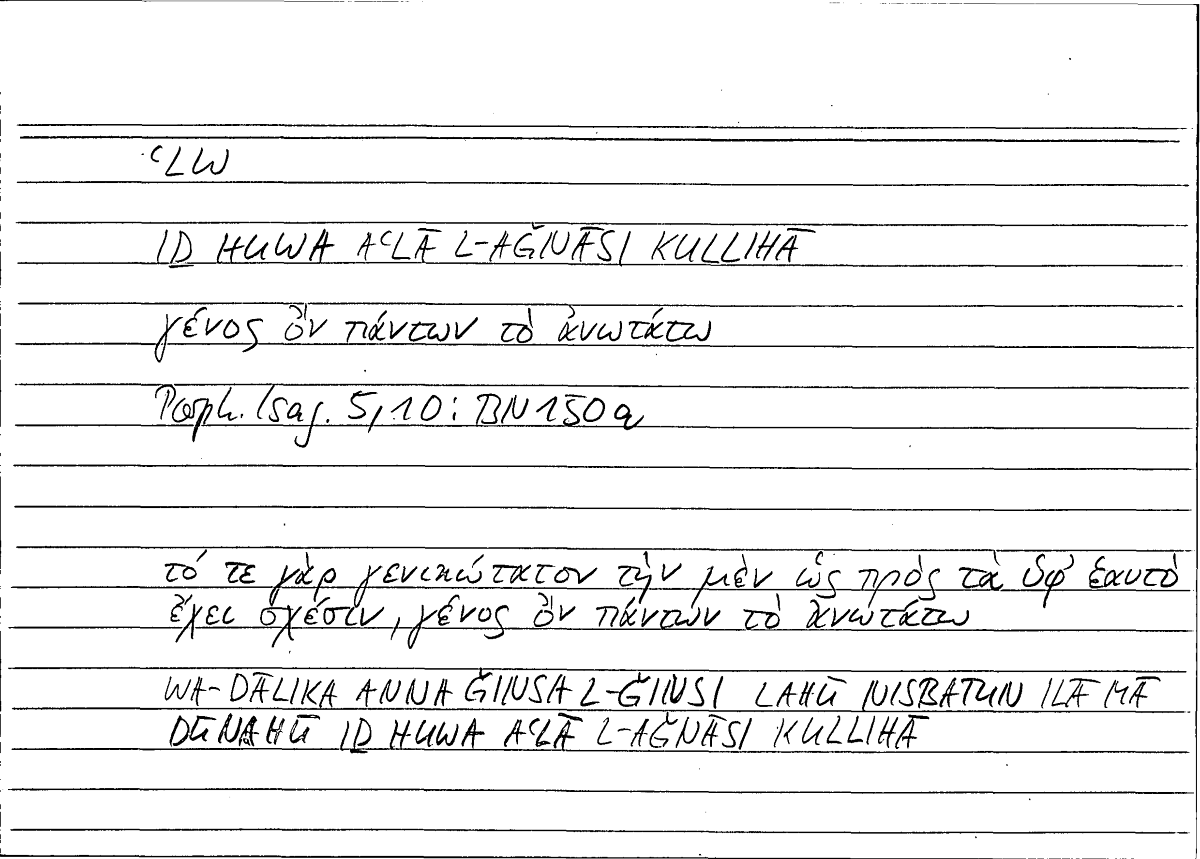 ʿLW
IḎ HUWA AʿLĀ L-AǦNĀSI KULLIHĀ
γένος ὂν πάντων τὸ ἀνωτάτω
Porph. Isag. 5,10: BN 150a
τό τε γὰρ γενικώτατον τὴν μὲν ὡς πρὸς τὰ ὑφ' ἑαυτὸ
ἔχει σχέσιν, γένος ὂν πάντων τὸ ἀνωτάτω
WA-DĀLIKA ANNA ǦINSA L-ǦINSI LAHŪ NISBATUN ILĀ MĀ
DŪNAHŪ IḎ HUWA AʿLĀ L-AǦNĀSI KULLIHĀ